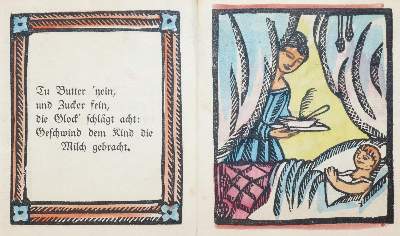 Tu Butter 'nein,
und Zucker fein,
die Glock' schlägt acht:
Geschwind dem Kind die
Milch gebracht.